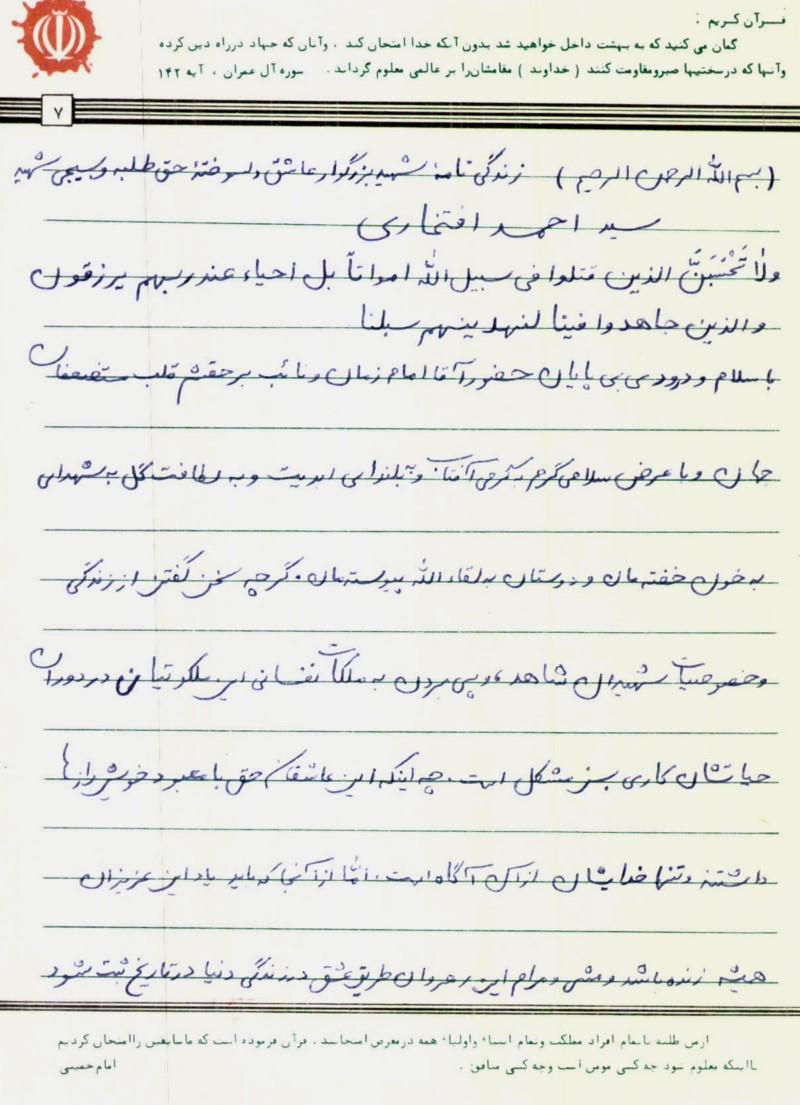 قـرآن کـریم :
گمان می کنید که به بهشت داخل خواهید شد بدون آنکه خدا امتحان کند ، وآنان که جهاد درراه دین کرده
وآنها که درسختیها صبرومقاومت کنند ( خداوند ) مقامشان‌را بر عالمی معلوم گرداند . سوره آل عمران ، آیه ۱۴۲
۷
(بسم الله الرحمن الرحیم) زندگی نامهٔ شهید بزرگوار عاشق دلسوختهٔ حق طلبه و بسیجی شهید
سید احمد افتخاری
ولا تَحْسَبَنَّ الذین قتلوا فی سبیل الله امواتاً بل احیاء عند ربهم یرزقون
والذین جاهدوا فینا لنهدینهم سبلنا
با سلام و درودی بی پایان حضور آقا امام زمان و نائب برحقش قلب مستضعفان
جهان و با عرض سلامی گرم به گرمی آفتاب و به بلندای ابدیت و به لطافت گل به شهدای
به خون خفته مان و دوستان به لقاء الله پیوسته مان . گرچه سخن گفتن از زندگی
وخصوصیات شهیدان شاهد ، و پی بردن به ملکات نفسانی این ملکوتیان در دوران
حیاتشان کاری بس مشکل است . چه اینکه این عاشقان حق با معبود خویش رازها
داشتند و تنها خدایشان از آن آگاه است . امّا از آنجا که باید یاد این عزیزان
همیشه زنده باشد و مشی و مرام این رهروان طریق عشق در زندگی دنیا در تاریخ ثبت شود
ازمن طلبه تاتمام افراد مملکت وتمام انبیاء واولیاء همه درمعرض امتحانند . قرآن فرموده است که ماسابقین راامتحان کردیم
تااینکه معلوم شود چه کسی مومن است وچه کسی منافق . امام خمینی